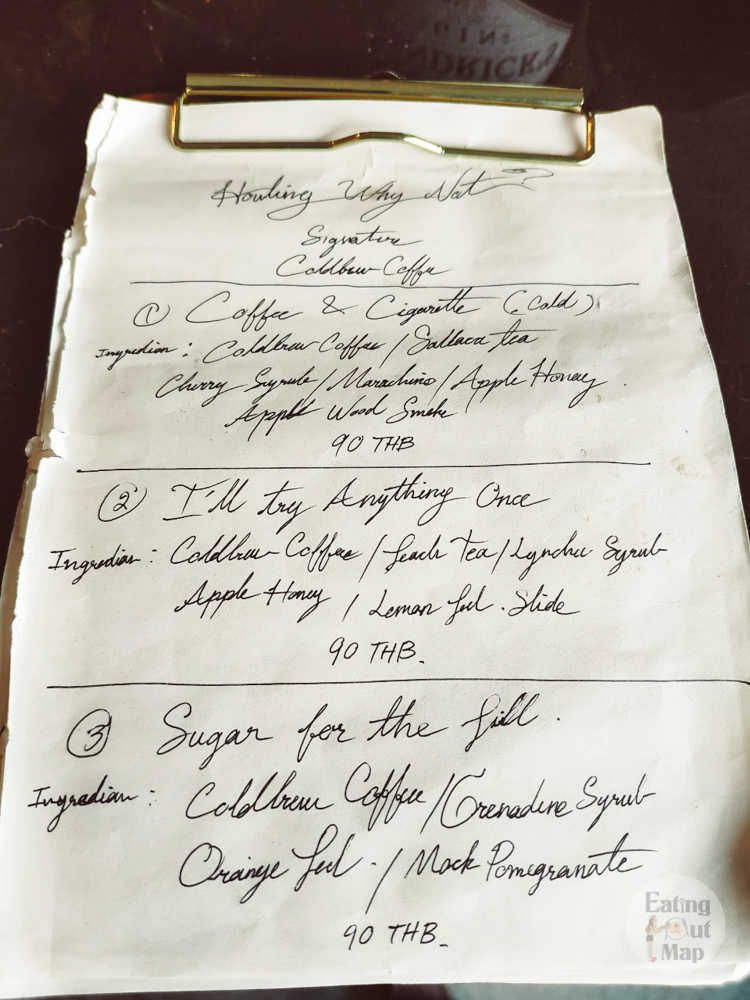 GIN
HENDRICK'S
Howling Why Not?
Signature
Coldbrew Coffee
① Coffee & Cigarette (Cold)
Ingredian : Coldbrew Coffee / Sallaca tea
Cherry Syrub / Marachino / Apple Honey
Apple Wood Smoke
90 THB
② I'll try Anything Once
Ingredian : Coldbrew Coffee / Peach Tea / Lynchee Syrub
Apple Honey / Lemon Peel . Slide
90 THB.
③ Sugar for the Pill .
Ingredian : Coldbrew Coffee / Grenadine Syrub
Orange Peel . / Mock Pomegranate
90 THB.
Eating
Out
Map